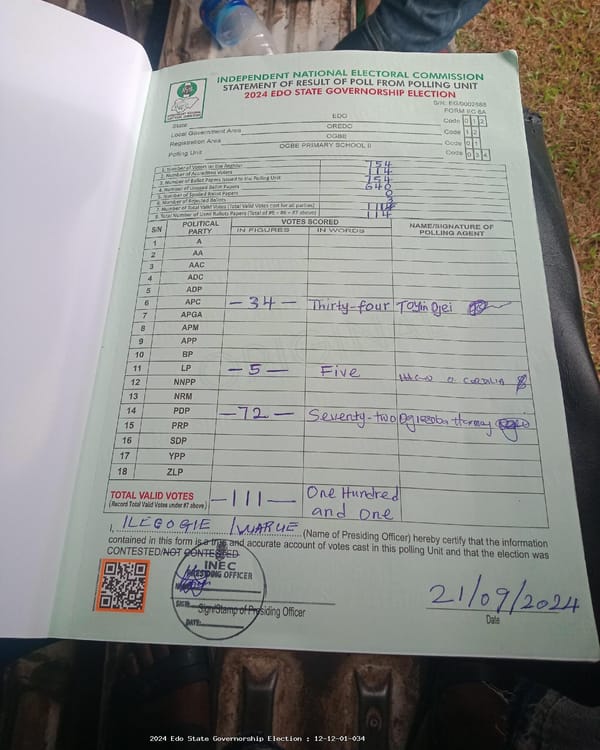 INDEPENDENT NATIONAL ELECTORAL COMMISSION
STATEMENT OF RESULT OF POLL FROM POLLING UNIT
2024 EDO STATE GOVERNORSHIP ELECTION
S/N: EG/0002588
FORM EC 8A
State EDO Code 0 1 2
Local Government Area OREDO Code 1 2
Registration Area OGBE Code 0 1
Polling Unit OGBE PRIMARY SCHOOL II Code 0 3 4
1. Number of Voters on the Register 754
2. Number of Accredited Voters 114
3. Number of Ballot Papers Issued to the Polling Unit 754
4. Number of Unused Ballot Papers 640
5. Number of Spoiled Ballot Papers 0
6. Number of Rejected Ballots 3
7. Number of Total Valid Votes (Total Valid Votes cast for all parties)
8. Total Number of Used Ballots Papers (Total of #5 + #6 + #7 above) 114
S/N POLITICAL PARTY VOTES SCORED NAME/SIGNATURE OF POLLING AGENT
IN FIGURES IN WORDS
1 A
2 AA
3 AAC
4 ADC
5 ADP
6 APC - 34 - Thirty-four Toyin
7 APGA
8 APM
9 APP
10 BP
11 LP - 5 - Five
12 NNPP
13 NRM
14 PDP - 72 - Seventy-two
15 PRP
16 SDP
17 YPP
18 ZLP
TOTAL VALID VOTES - 111 - One Hundred
(Record Total Valid Votes under #7 above) and One
I, (Name of Presiding Officer) hereby certify that the information
contained in this form is a true and accurate account of votes cast in this polling Unit and that the election was
CONTESTED/NOT CONTESTED
INEC
PRESIDING OFFICER
SIGN
Sign/Stamp of Presiding Officer
DATE
21/09/2024
Date
2024 Edo State Governorship Election : 12-12-01-034